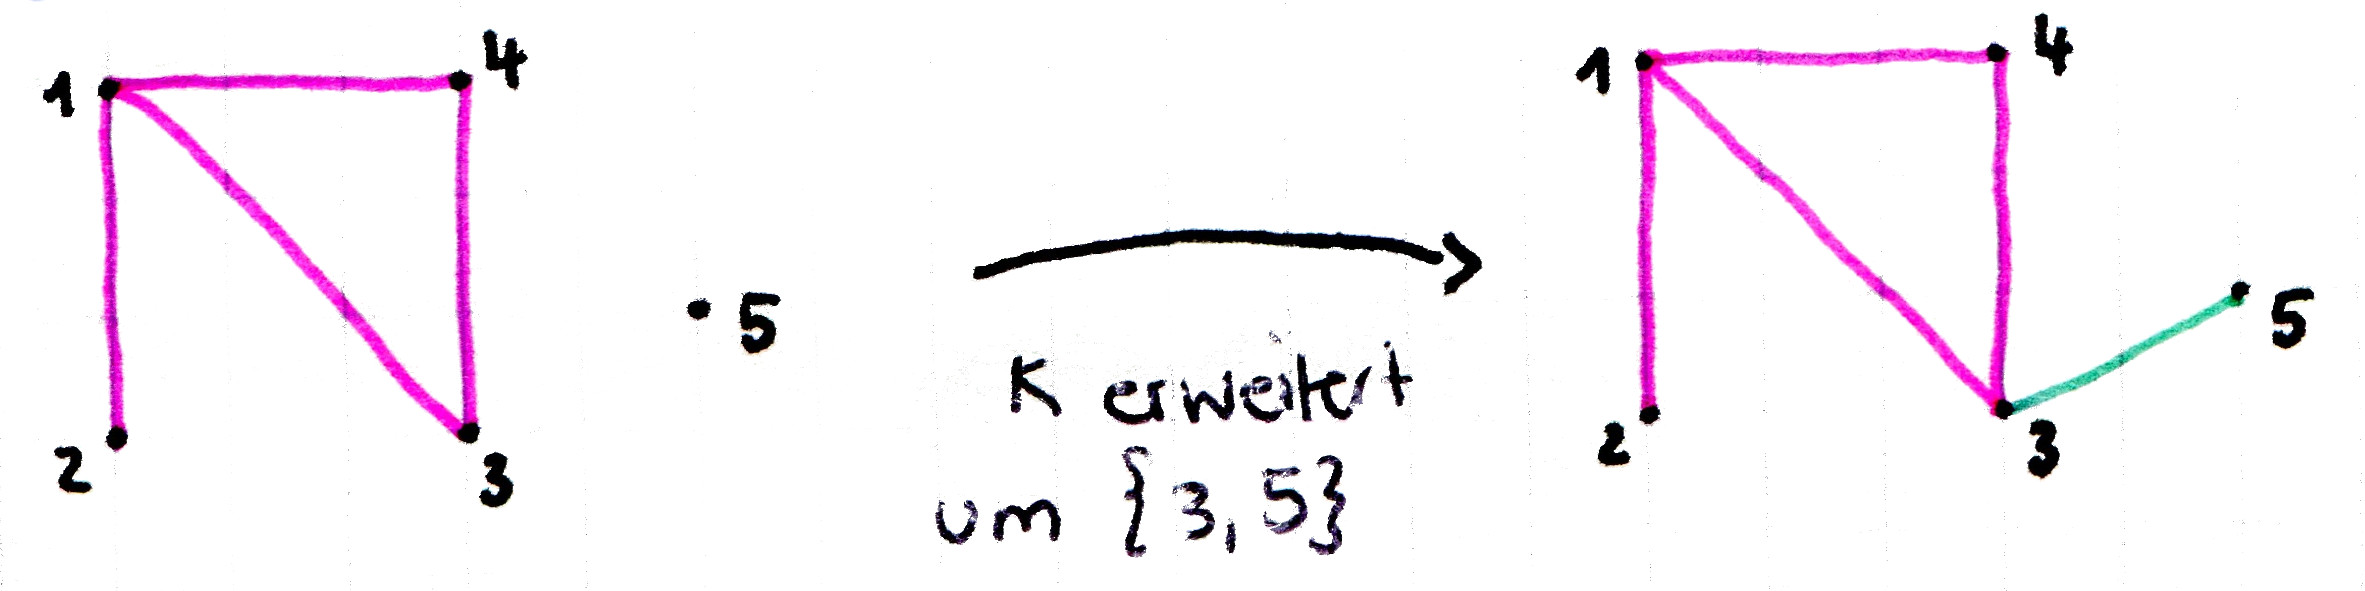 1
4
2
3
5
K erweitert
um {3,5}
1
4
2
3
5